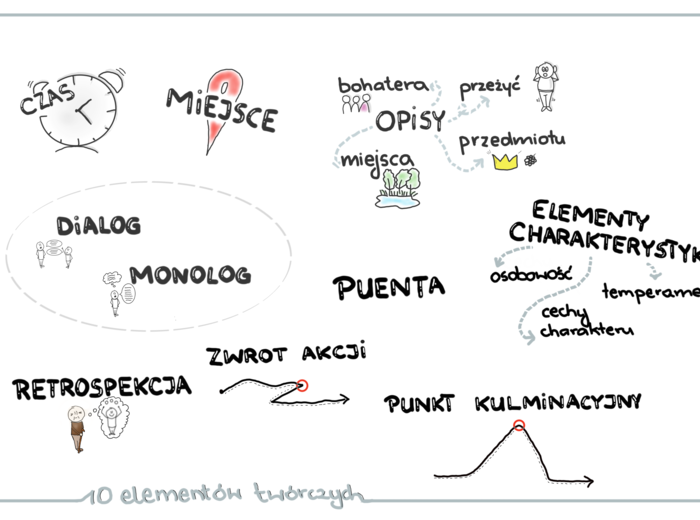 CZAS
MiEJSCE
bohatera
przeżyć
OPiSY
przedmiotu
miejsca
DiALOG
MONOLOG
ELEMENTY
CHARAKTERYSTYK
osobowość
temperame
cechy
charakteru
PUENTA
ZWROT AKCJi
RETROSPEKCJA
PUNKT KULMiNACYJNY
10 elementów twórczych